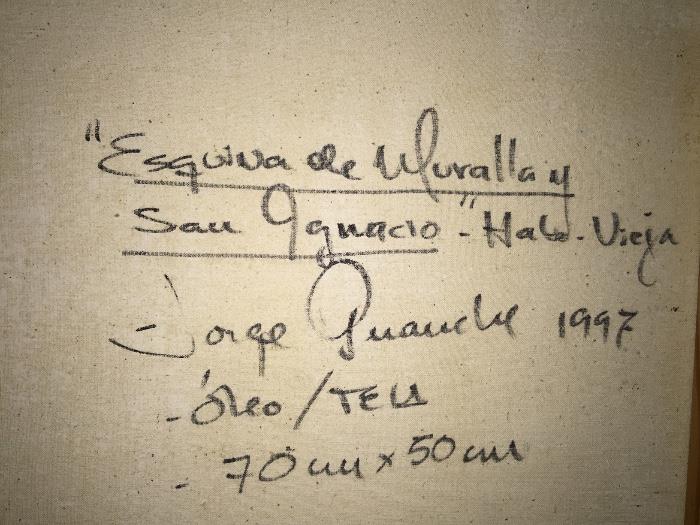 "Esquina de Muralla y
San Ignacio"- Hab. Vieja
- Jorge Guanche 1997
- Óleo / TELA
- 70 cm x 50 cm